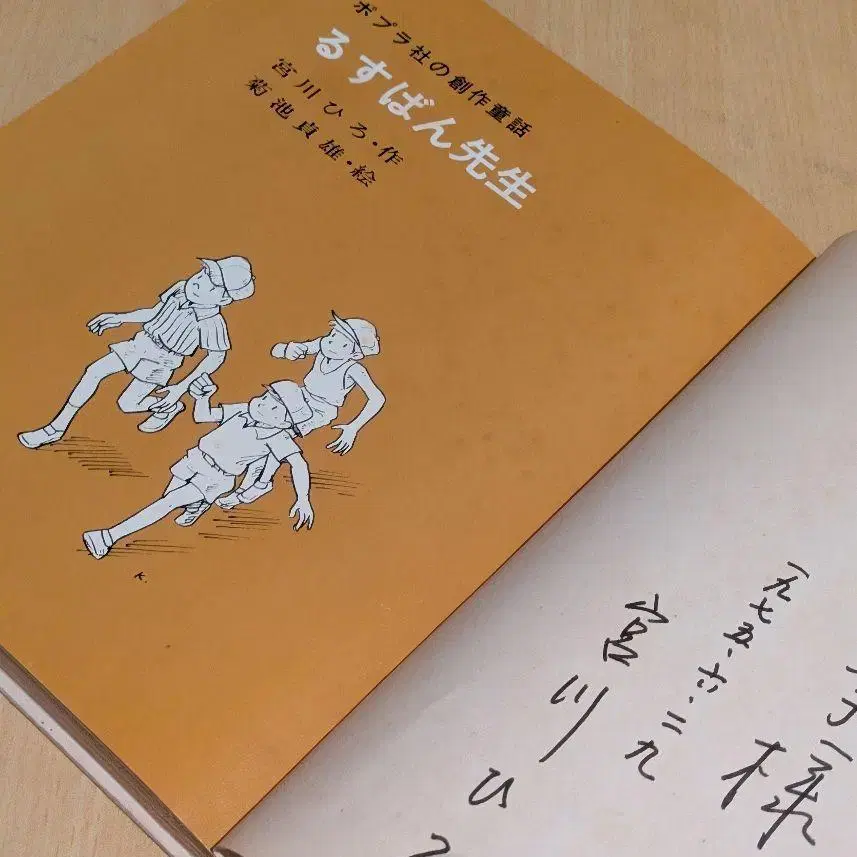 ポプラ社の創作童話
るすばん先生
宮川ひろ・作
菊池貞雄・絵
K.
様
一九七五・六・二九
宮川ひ